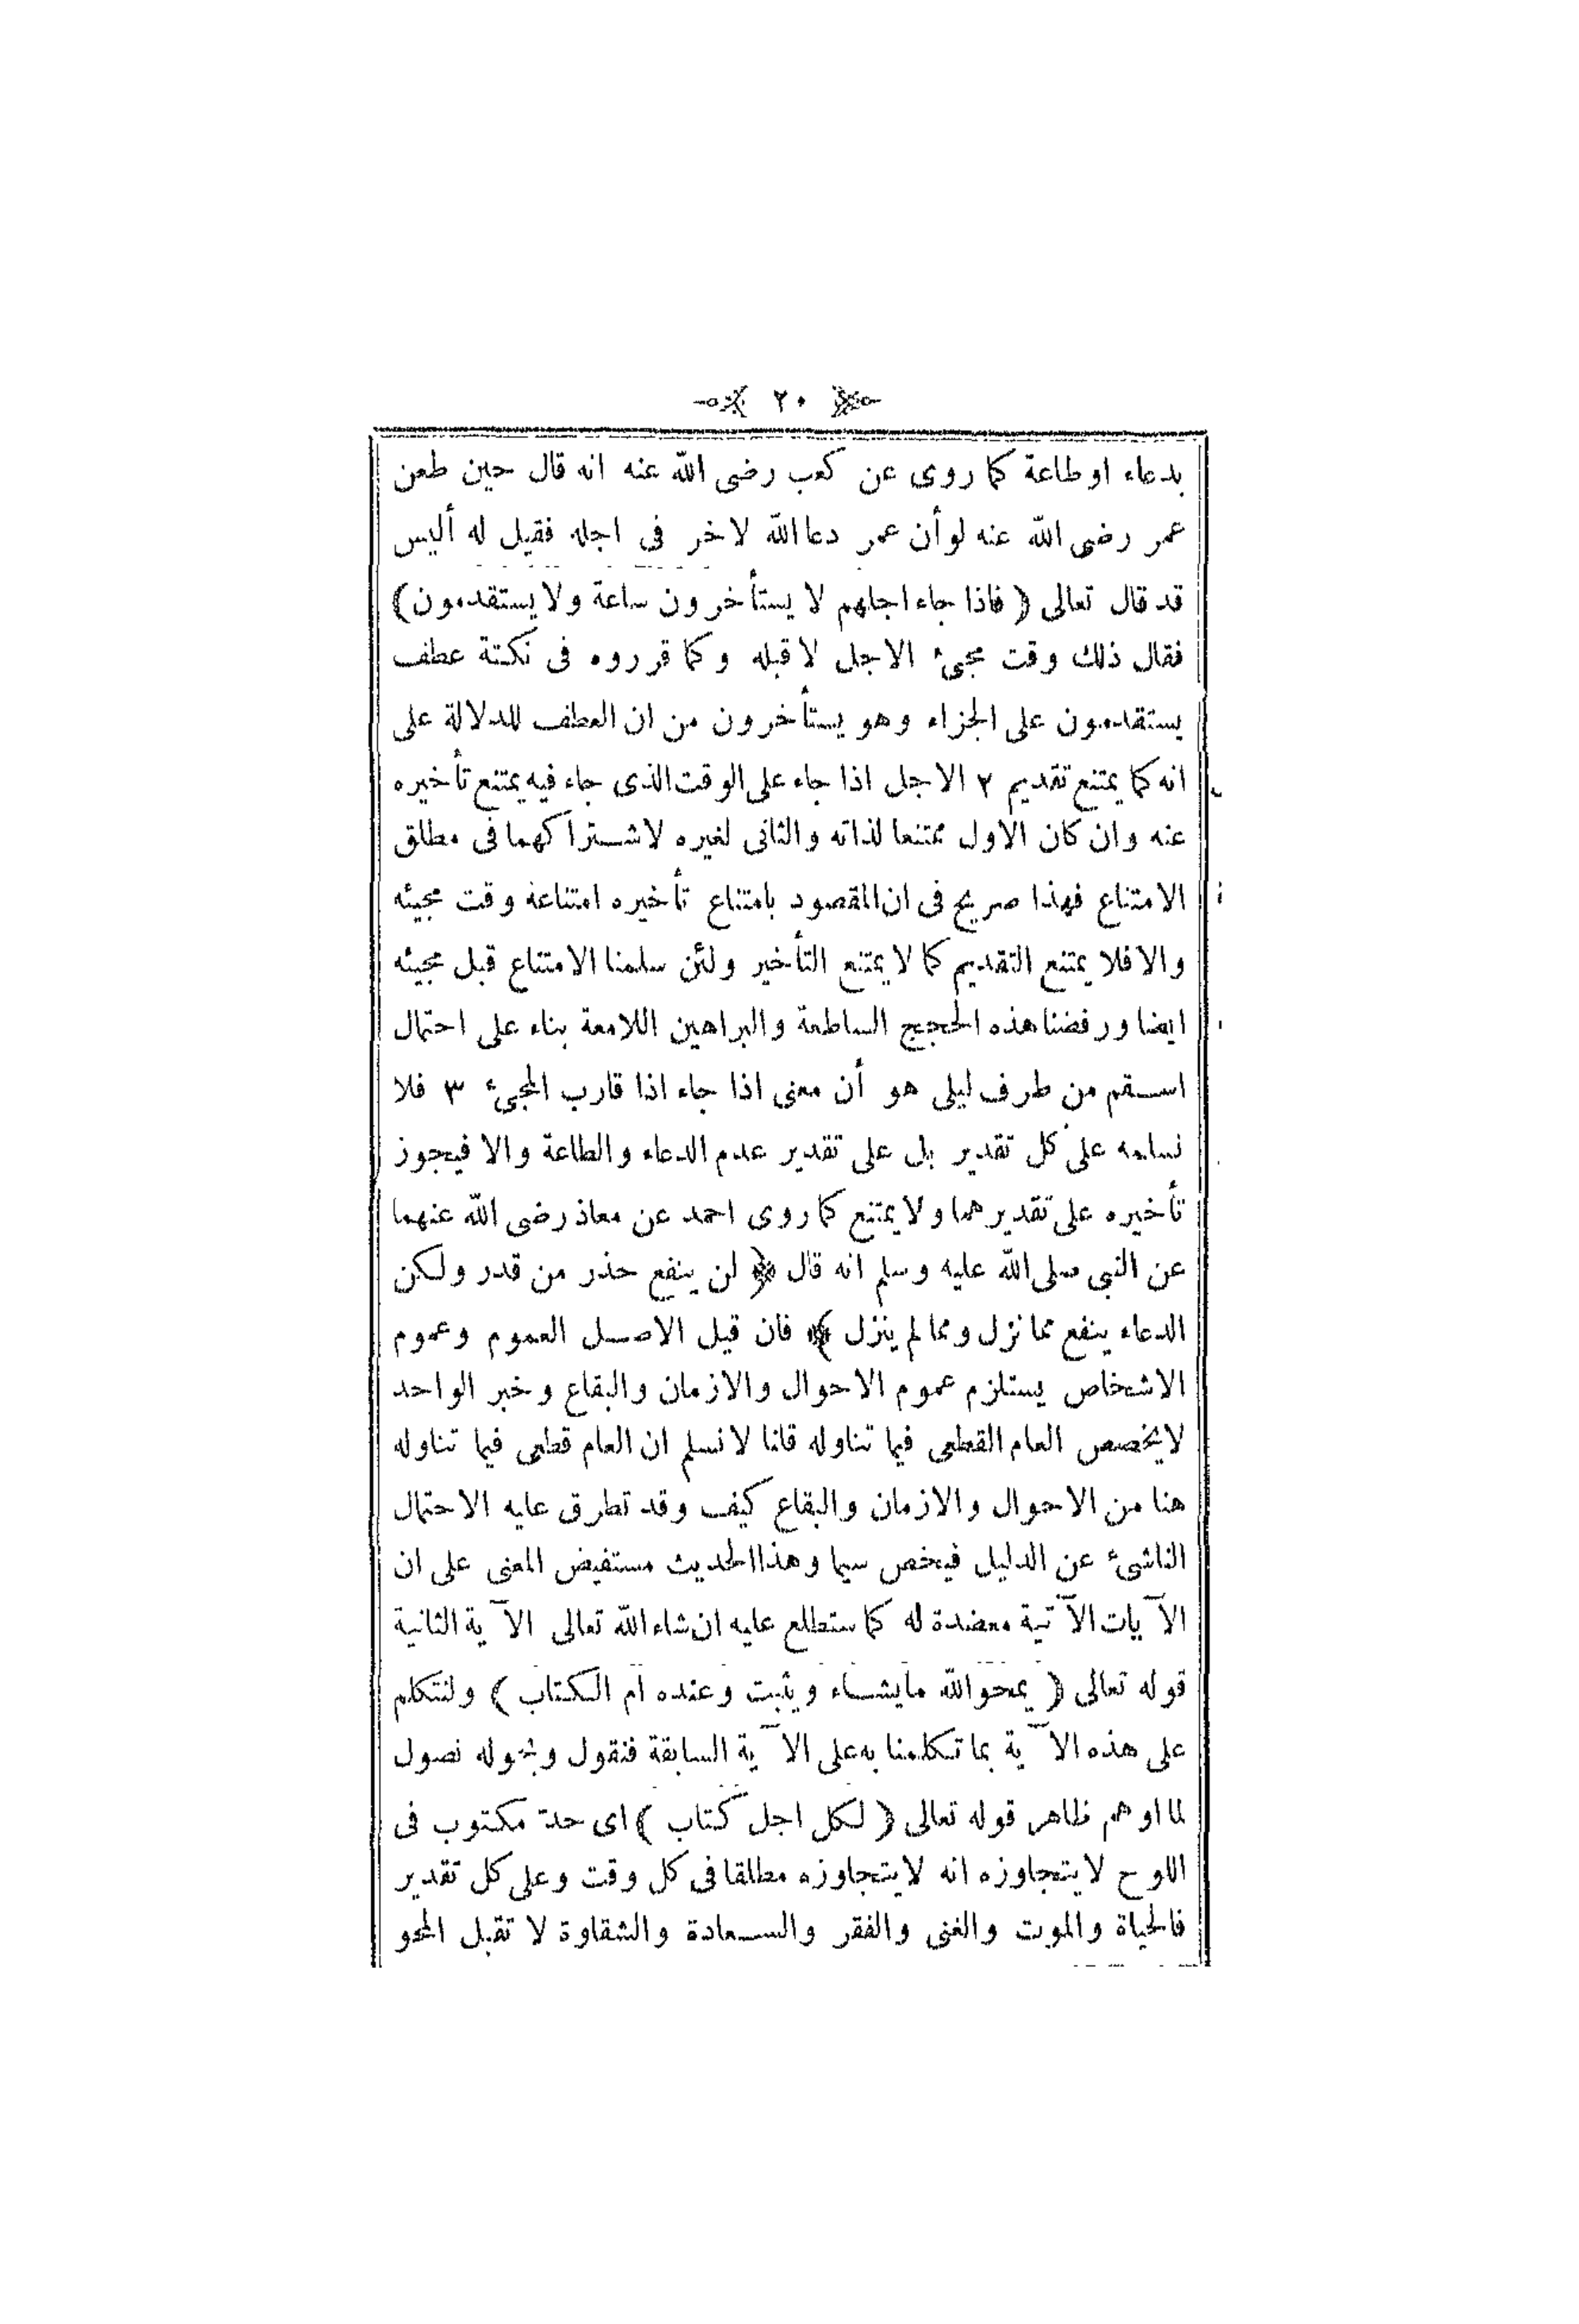 ٢٠
بدعاء او طاعة كما روى عن كعب رضى الله عنه انه قال حين طعن
عمر رضى الله عنه لو أن عمر دعا الله لاخر فى اجله فقيل له أليس
قد قال تعالى ( فاذا جاء اجلهم لا يستأخرون ساعة ولا يستقدمون )
فقال ذلك وقت مجئ الاجل لا قبله وكما قرروه فى نكتة عطف
يستقدمون على الجزاء وهو يستأخرون من ان العطف للدلالة على
انه كما يمتنع تقديم ٢ الاجل اذا جاء على الوقت الذى جاء فيه يمتنع تأخيره
عنه وان كان الاول ممتنعا لذاته والثانى لغيره لاشتراكهما فى مطلق
الامتناع فهذا صريح فى ان المقصود بامتناع تأخيره امتناعه وقت مجيئه
والا فلا يمتنع التقديم كما لا يمتنع التأخير ولئن سلمنا الامتناع قبل مجيئه
ايضا ورفضنا هذه الحجج الساطعة والبراهين اللامعة بناء على احتمال
اسقم من طرف ليلى هو أن معنى اذا جاء اذا قارب المجئ ٣ فلا
نسلمه على كل تقدير بل على تقدير عدم الدعاء والطاعة والا فيجوز
تأخيره على تقديرهما ولا يمتنع كما روى احمد عن معاذ رضى الله عنهما
عن النبى صلى الله عليه وسلم انه قال ﴿ لن ينفع حذر من قدر ولكن
الدعاء ينفع مما نزل ومما لم ينزل ﴾ فان قيل الاصل العموم وعموم
الاشخاص يستلزم عموم الاحوال والازمان والبقاع وخبر الواحد
لا يخصص العام القطعى فيما تناوله قلنا لا نسلم ان العام قطعى فيما تناوله
هنا من الاحوال والازمان والبقاع كيف وقد تطرق عليه الاحتمال
الناشئ عن الدليل فيخص سيما وهذا الحديث مستفيض المعنى على ان
الآيات الآتية معضدة له كما ستطلع عليه ان شاء الله تعالى الآية الثانية
قوله تعالى ( يمحو الله ما يشاء ويثبت وعنده ام الكتاب ) ولنتكلم
على هذه الآية بما تكلمنا به على الآية السابقة فنقول وبحوله نصول
لما اوهم ظاهر قوله تعالى ( لكل اجل كتاب ) اى حد مكتوب فى
اللوح لا يتجاوزه انه لا يتجاوزه مطلقا فى كل وقت وعلى كل تقدير
فالحياة والموت والغنى والفقر والسعادة والشقاوة لا تقبل المحو